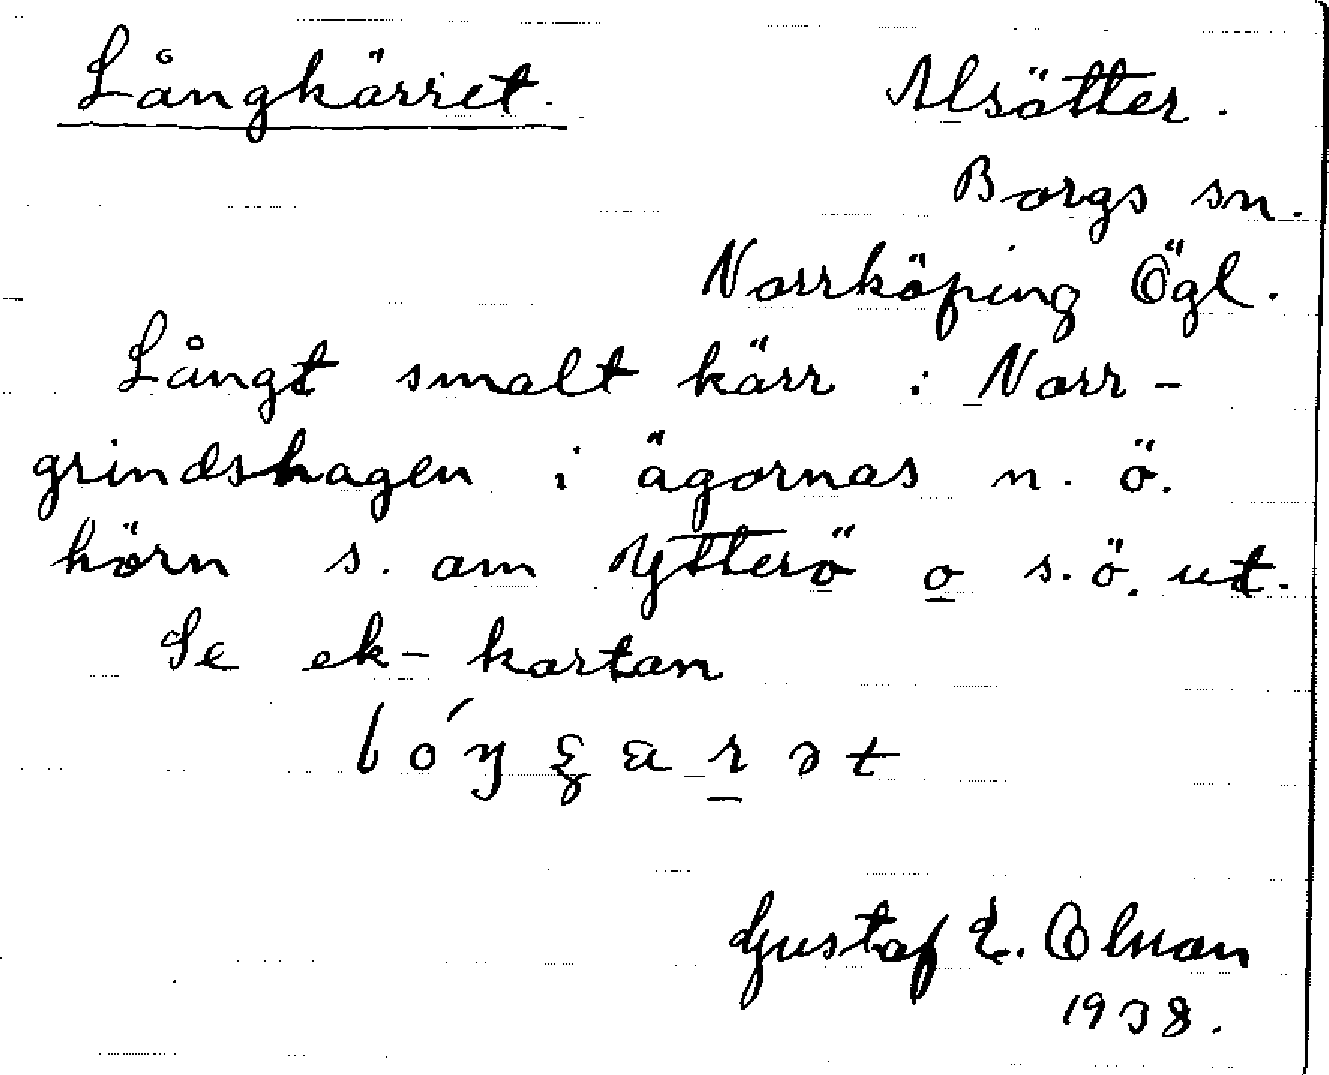 Långkärret. Alsätter.
Borgs sn.
Norrköping Ögl.
Långt smalt kärr i Norr-
grindshagen i ägornas n. ö.
hörn s. om Ytterö o s. ö. ut.
Se ek-kartan
Gustaf E. Olson
1938.